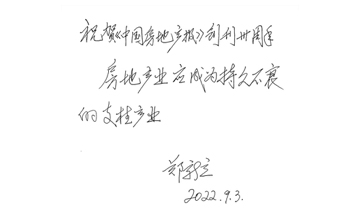 祝贺《中国房地产报》创刊卅周年
房地产业应成为持久不衰
的支柱产业
郑新立
2022.9.3.